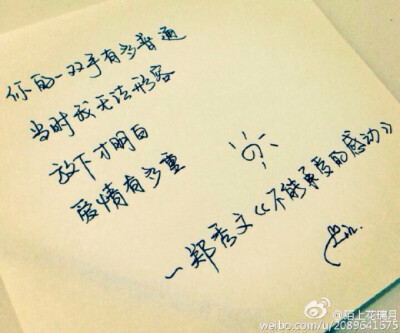 你的一双手有多普通
当时我无法形容
放下才明白
爱情有多重
—郑秀文《不能承受的感动》
@陌上花璃月
weibo.com/u/2089641575